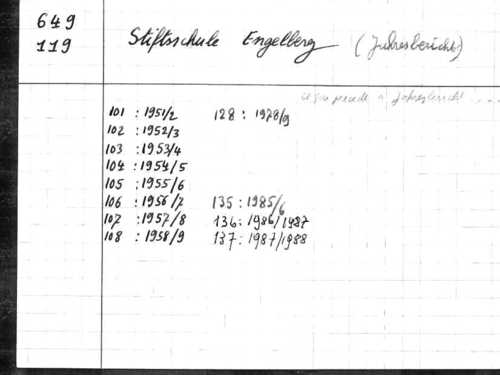 649
119
Stiftsschule Engelberg (Jahresbericht)
Jahresbericht
101 : 1951/2
102 : 1952/3
103 : 1953/4
104 : 1954/5
105 : 1955/6
106 : 1956/7
107 : 1957/8
108 : 1958/9
128 : 1978/9
135 : 1985/6
136 : 1986/1987
137 : 1987/1988